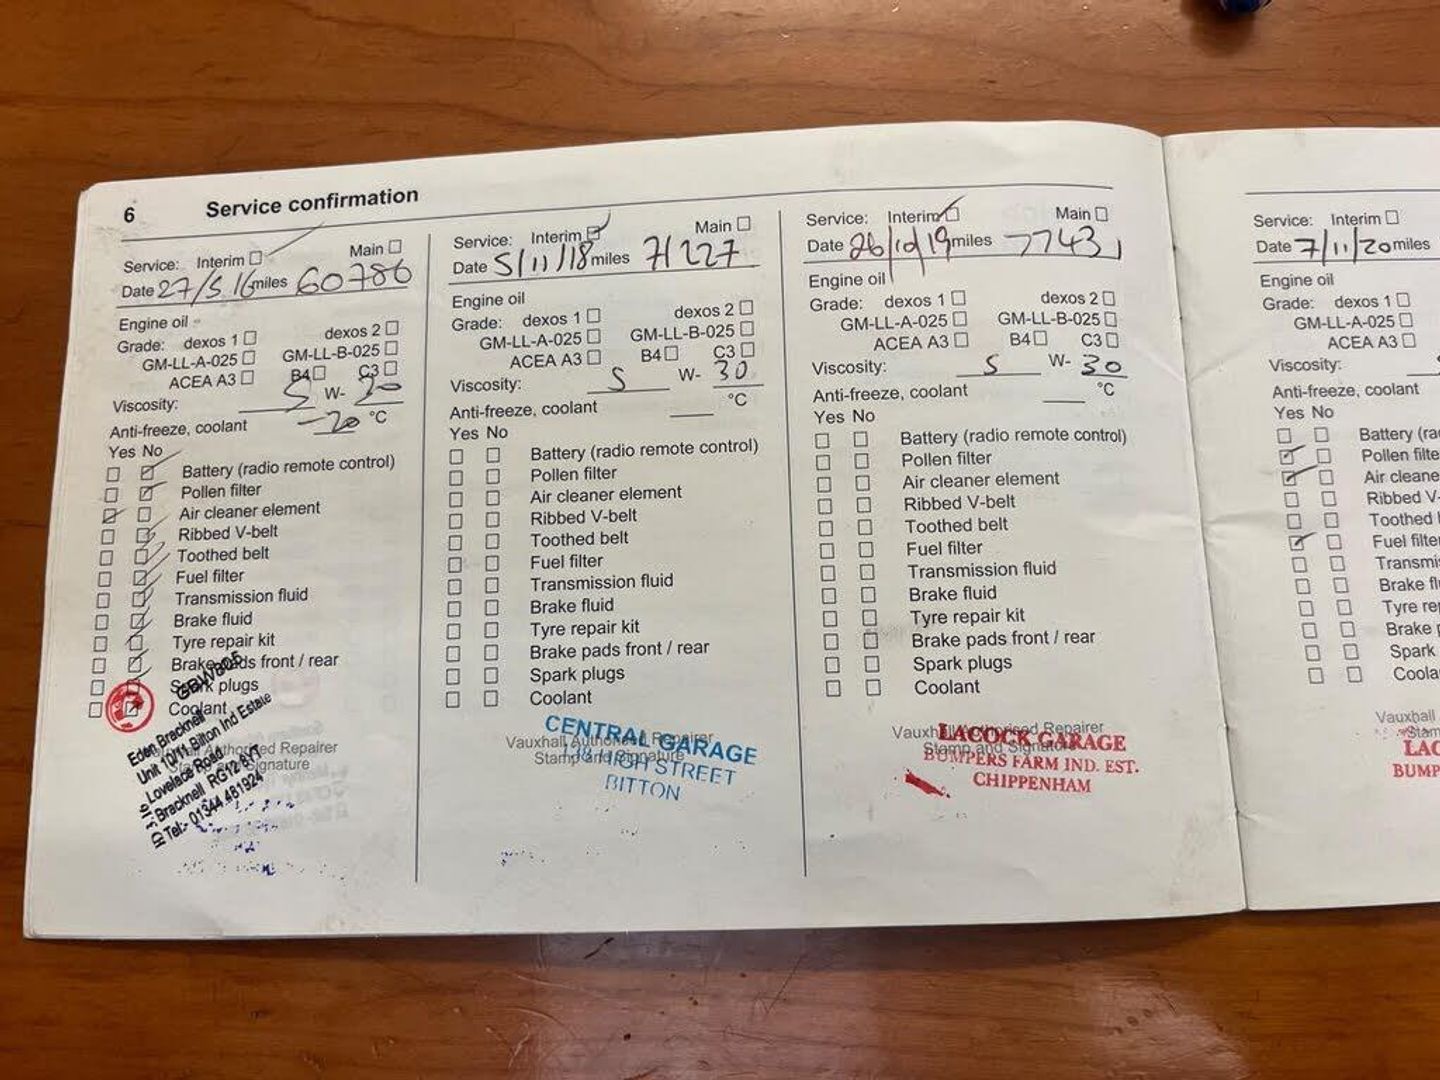 6 Service confirmation
Service: Interim Main
Date 27/5/16 miles 60786
Engine oil
Grade: dexos 1 dexos 2
GM-LL-A-025 GM-LL-B-025
ACEA A3 B4 C3
Viscosity: 5 W- 30
Anti-freeze, coolant -20 °C
Yes No
Battery (radio remote control)
Pollen filter
Air cleaner element
Ribbed V-belt
Toothed belt
Fuel filter
Transmission fluid
Brake fluid
Tyre repair kit
Brake pads front / rear
Spark plugs
Coolant
Vauxhall Authorised Repairer
Stamp and Signature
Eden Bracknell
Unit 10/11 Bilton Ind Estate
Lovelace Road
Bracknell RG12 8YT
Tel:- 01344 481924
Service: Interim Main
Date 5/11/18 miles 71227
Engine oil
Grade: dexos 1 dexos 2
GM-LL-A-025 GM-LL-B-025
ACEA A3 B4 C3
Viscosity: 5 W- 30
Anti-freeze, coolant °C
Yes No
Battery (radio remote control)
Pollen filter
Air cleaner element
Ribbed V-belt
Toothed belt
Fuel filter
Transmission fluid
Brake fluid
Tyre repair kit
Brake pads front / rear
Spark plugs
Coolant
Vauxhall Authorised Repairer
Stamp and Signature
CENTRAL GARAGE
HIGH STREET
BITTON
Service: Interim Main
Date 26/10/19 miles 77431
Engine oil
Grade: dexos 1 dexos 2
GM-LL-A-025 GM-LL-B-025
ACEA A3 B4 C3
Viscosity: 5 W- 30
Anti-freeze, coolant °C
Yes No
Battery (radio remote control)
Pollen filter
Air cleaner element
Ribbed V-belt
Toothed belt
Fuel filter
Transmission fluid
Brake fluid
Tyre repair kit
Brake pads front / rear
Spark plugs
Coolant
Vauxhall Authorised Repairer
Stamp and Signature
LACOCK GARAGE
BUMPERS FARM IND. EST.
CHIPPENHAM
Service: Interim
Date 7/11/20 miles
Engine oil
Grade: dexos 1
GM-LL-A-025
ACEA A3
Viscosity:
Anti-freeze, coolant
Yes No
Battery (ra
Pollen filte
Air cleane
Ribbed V-
Toothed b
Fuel filte
Transmi
Brake fl
Tyre re
Brake p
Spark
Coola
Vauxhall
Stam
LAC
BUMP